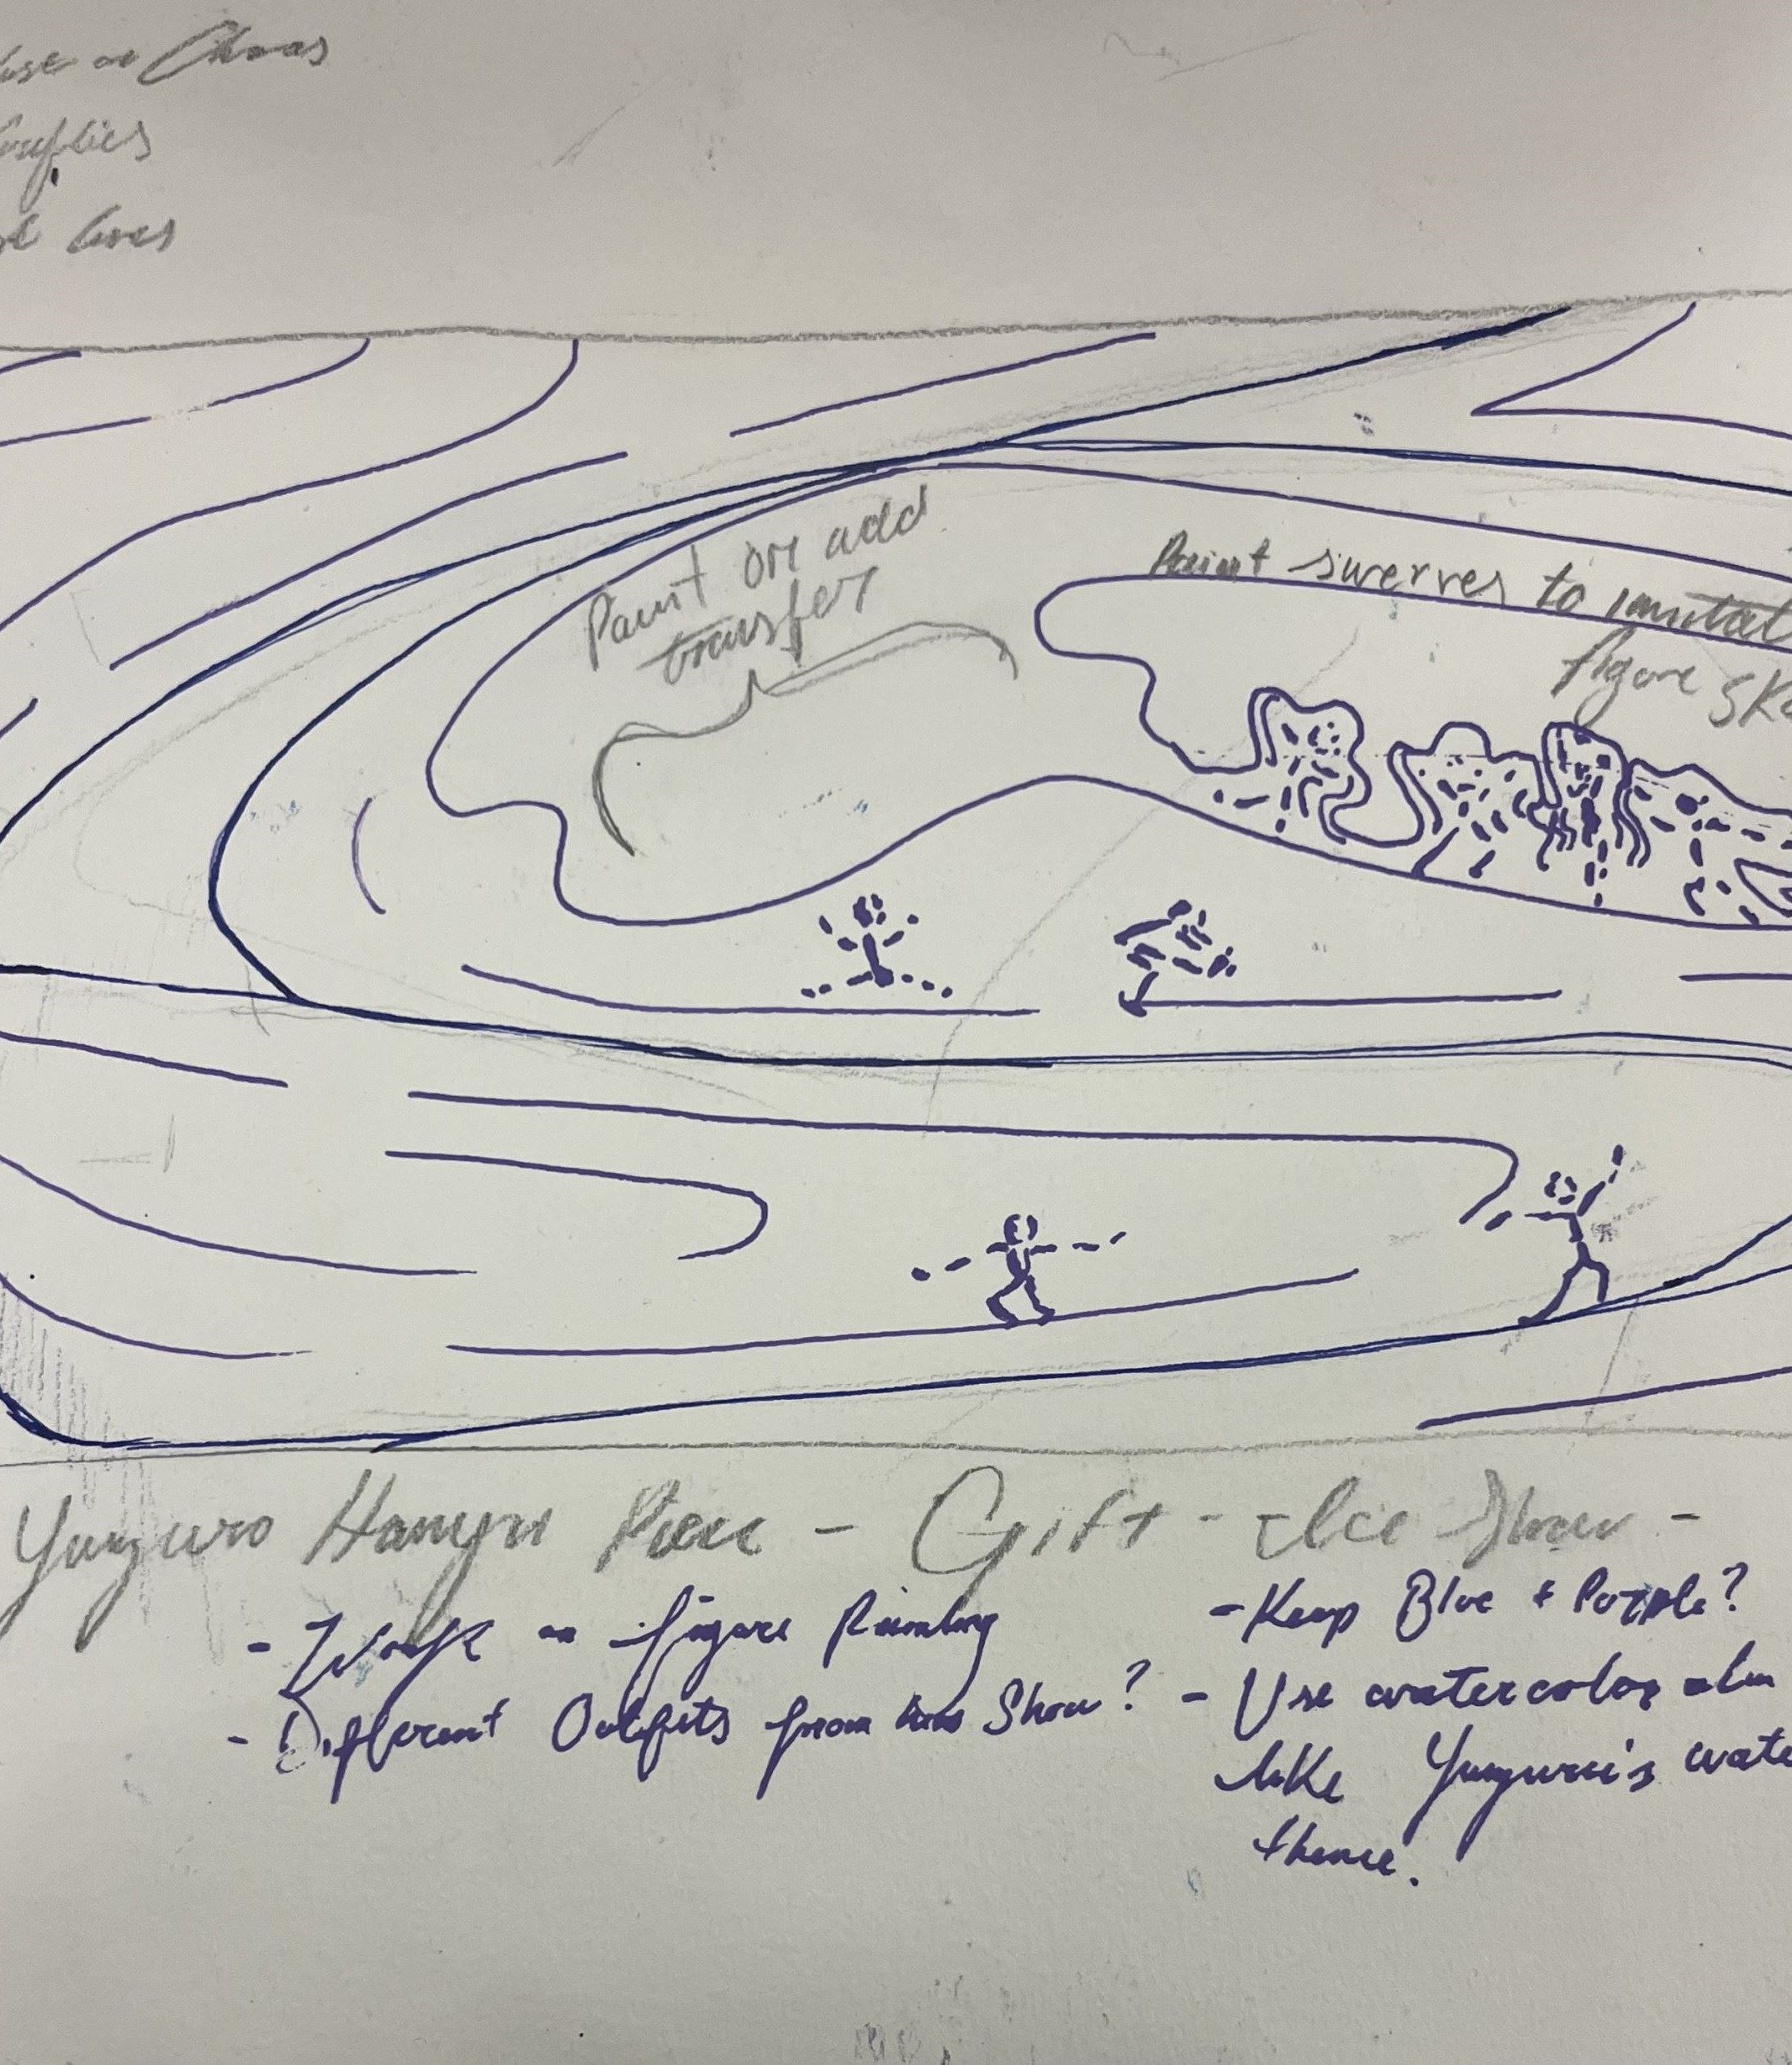 Chaos
lines
Paint or add
transfer
Paint swerves to imitat
figure Ska
Yunzuro Hanyu Piece - Gift - Ice Show -
- Work on figure Running
- Different Outfits from his Show?
- Keep Blue & Purple?
- Use watercolor also
like Yunzuru's wate
theme.